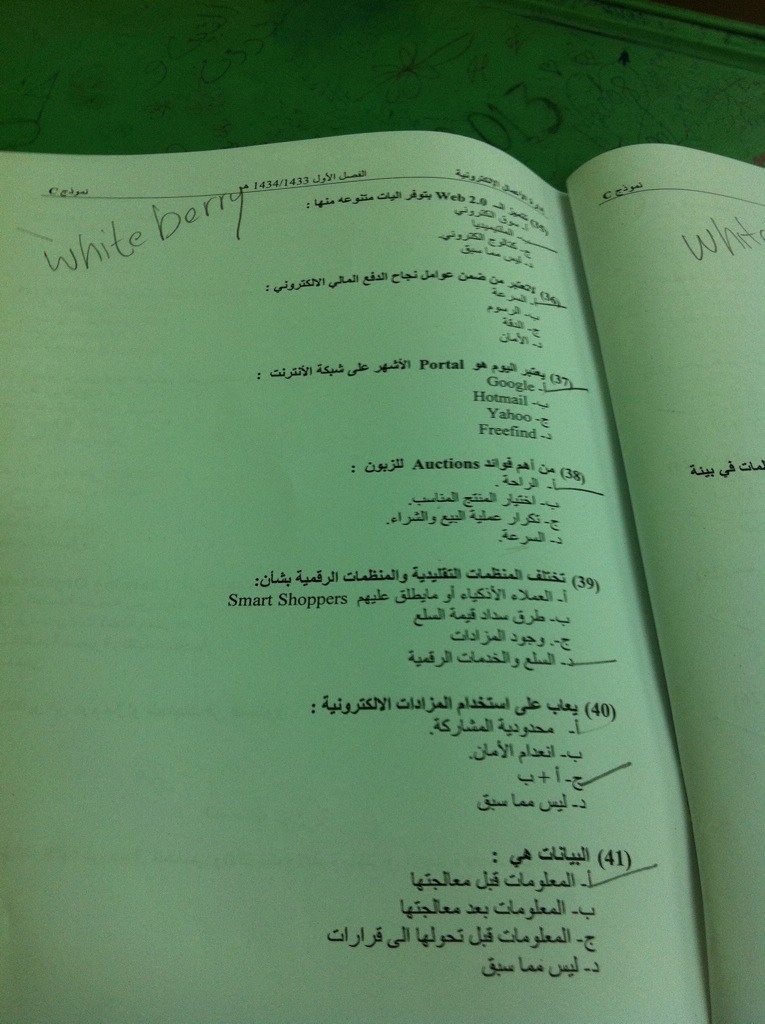 إدارة الأعمال الإلكترونية الفصل الأول 1434/1433 هـ نموذج C
white berry
(35) تتميز الـ Web 2.0 بتوفر اليات متنوعه منها :
أ- سوق الكتروني
ب- الملتيميديا
ج- كتالوج الكتروني.
د- ليس مما سبق
(36) لاتعتبر من ضمن عوامل نجاح الدفع المالي الالكتروني :
أ- السرعة
ب- الرسوم
ج- الدقة
د- الأمان
(37) يعتبر اليوم هو Portal الأشهر على شبكة الأنترنت :
أ- Google
ب- Hotmail
ج- Yahoo
د- Freefind
(38) من أهم فوائد Auctions للزبون :
أ- الراحة .
ب- اختيار المنتج المناسب.
ج- تكرار عملية البيع والشراء.
د- السرعة.
(39) تختلف المنظمات التقليدية والمنظمات الرقمية بشأن:
أ- العملاء الأذكياء أو مايطلق عليهم Smart Shoppers
ب- طرق سداد قيمة السلع
ج-. وجود المزادات
د- السلع والخدمات الرقمية
(40) يعاب على استخدام المزادات الالكترونية :
أ- محدودية المشاركة.
ب- انعدام الأمان.
ج- أ + ب
د- ليس مما سبق
(41) البيانات هي :
أ- المعلومات قبل معالجتها
ب- المعلومات بعد معالجتها
ج- المعلومات قبل تحولها الى قرارات
د- ليس مما سبق
نموذج C
في بيئة
013